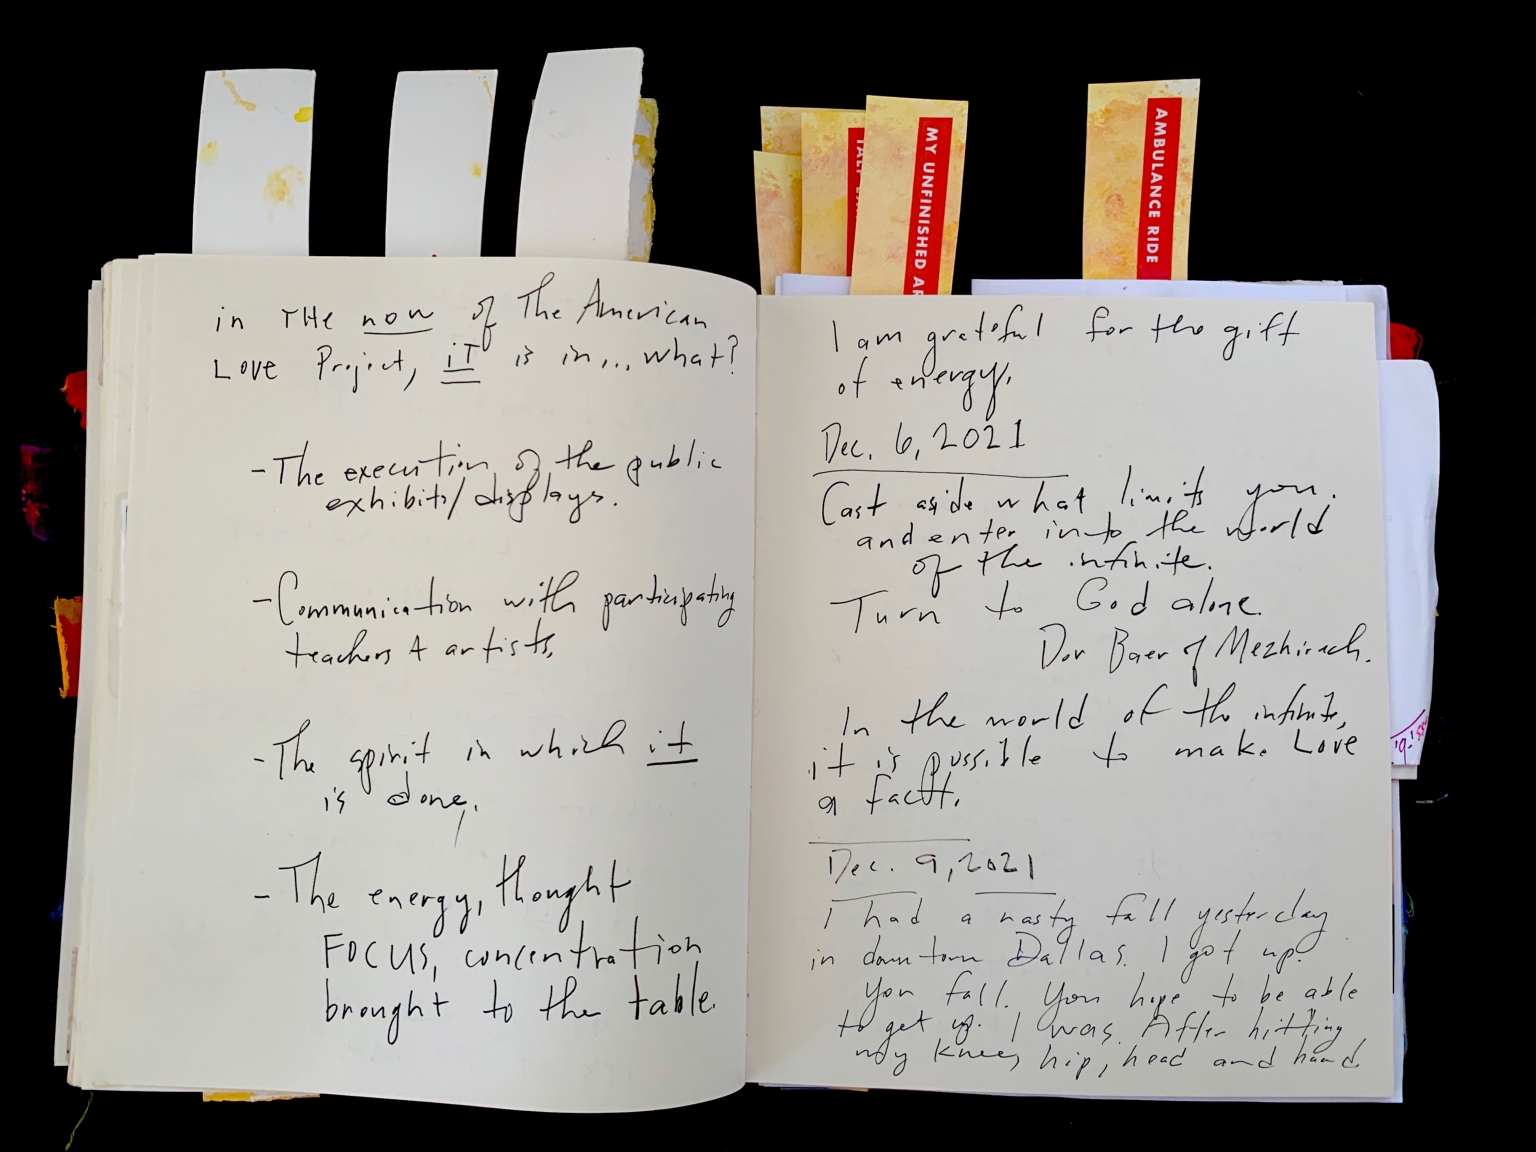 MY UNFINISHED
AMBULANCE RIDE
in THE now of The American
Love Project, iT is in... what?
- The execution of the public
exhibits/displays.
- Communication with participating
teachers + artists.
- The spirit in which it
is done,
- The energy, thought
FOCUS, concentration
brought to the table.
I am grateful for the gift
of energy.
Dec. 6, 2021
Cast aside what limits you.
and enter into the world
of the infinite.
Turn to God alone.
Dov Baer of Mezhirach.
In the world of the infinite,
it is possible to make Love
a fact.
Dec. 9, 2021
I had a nasty fall yesterday
in downtown Dallas. I got up.
You fall. You hope to be able
to get up. I was. After hitting
my knees, hip, head and hand